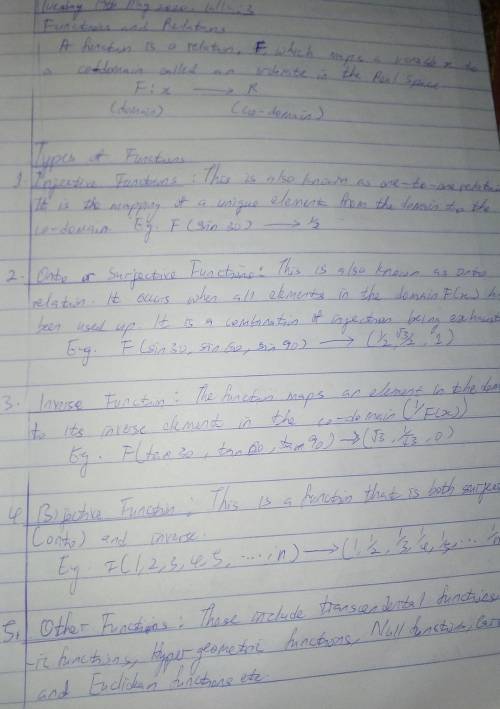 Tuesday
Functions and Relations
A function is a relation, F, which maps a variable x to
a co-domain called an ordinate in the Real Space
F : x → R
(domain) (co-domain)
Types of Functions
1. Injective Functions : This is also known as one-to-one relation
It is the mapping of a unique element from the domain to the
co-domain Eg. F (sin 30) → 1/2
2. Onto or Surjective Functions : This is also known as onto
relation. It occurs when all elements in the domain F(x) h
been used up. It is a combination of injection being exhaust
E.g. F(sin 30, sin 60, sin 90) → (1/2, √3/2, 1)
3. Inverse Function : The function maps an element in the dom
to its inverse element in the co-domain (1/F(x))
Eg. F(tan 30, tan 60, tan 90) → (√3, 1/√3, 0)
4. Bijective Function ; This is a function that is both surjec
(onto) and inverse.
Eg. F(1, 2, 3, 4, 5, ...., n) → (1, 1/2, 1/3, 1/4, 1/5, ....
5. Other Functions : These include transcendental functions
-ic functions, Hyper geometric functions, Null function,
and Euclidean functions etc.